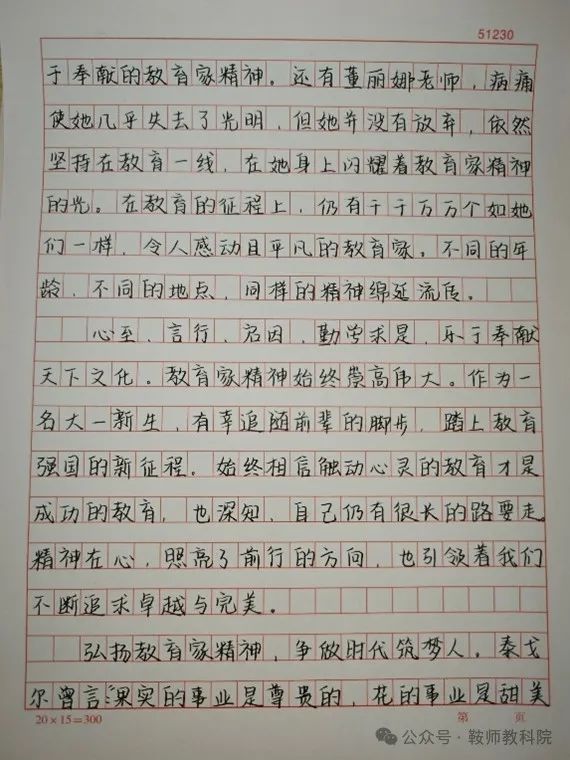 51230
于奉献的教育家精神。还有董丽娜老师,病痛
使她几乎失去了光明,但她并没有放弃,依然
坚持在教育一线,在她身上闪耀着教育家精神
的光。在教育的征程上,仍有千千万万个如她
们一样,令人感动且平凡的教育家。不同的年
龄,不同的地点,同样的精神绵延流传。
心至,言行,启因,勤学求是,乐于奉献
天下文化。教育家精神始终崇高伟大。作为一
名大一新生,有幸追随前辈的脚步,踏上教育
强国的新征程。始终相信触动心灵的教育才是
成功的教育,也深知,自己仍有很长的路要走。
精神在心,照亮了前行的方向,也引领着我们
不断追求卓越与完美。
弘扬教育家精神,争做时代筑梦人。泰戈
尔曾言:“果实的事业是尊贵的,花的事业是甜美
20×15=300
第 页
公众号·鞍师教科院